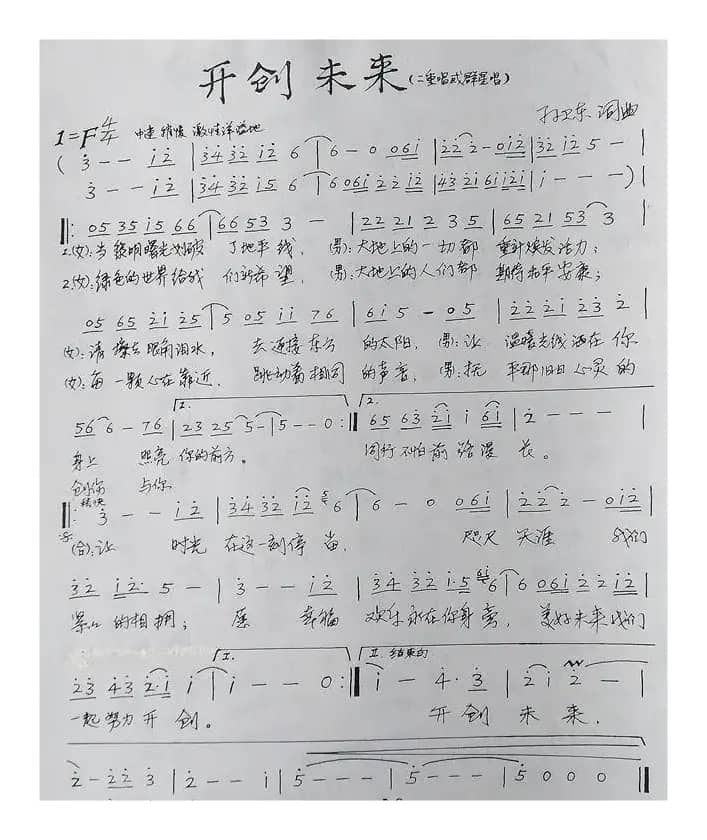 开创未来(二重唱或群星唱)
1=F 4/4 中速 稍慢 激情洋溢地 孙卫东 词曲
( 3 - - 1 2 | 3 4 3 2 1 2 6 | 6 - 0 0 6 1 | 2 2 2 - 0 1 2 | 3 2 1 2 5 - |
3 - - 1 2 | 3 4 3 2 1 5 6 | 6 0 6 1 2 2 1 2 | 4 3 2 1 6 1 2 1 | 1 - - - ) |
‖: 0 5 3 5 1 5 6 6 | 6 6 5 3 3 - | 2 2 2 1 2 3 5 | 6 5 2 1 5 3 3 |
1.(女):当黎明曙光划破 了地平线, (男):大地上的一切都 重新焕发活力;
2.(女):绿色的世界给我 们新希望, (男):大地上的人们都 期待和平安康;
0 5 6 5 2 1 2 5 | 5 0 5 1 1 7 6 | 6 1 5 - 0 5 | 2 2 2 1 2 3 2 |
(女):请擦去眼角泪水, 去迎接东方 的太阳, (男):让 温暖光线洒在你
(女):每一颗心在靠近, 跳动着相同 的声音, (男):抚 平那旧日心灵的
5 6 6 - 7 6 | 1. 2 3 2 5 5 - | 5 - - 0 :‖ 2. 6 5 6 3 2 1 1 6 1 | 2 - - - |
身上 照亮 你的前方。 同行不怕前路漫 长。
创伤 与你
‖: 稍快 3 - - 1 2 | 3 4 3 2 1 2 6 | 6 - 0 0 6 1 | 2 2 2 - 0 1 2 |
(合):让 时光 在这一刻停留, 咫尺 天涯 我们
3 2 1 2· 5 - | 3 - - 1 2 | 3 4 3 2 1·5 6 | 6 0 6 1 2 2 1 2 |
紧紧的相拥; 愿 幸福 欢乐永在你身旁, 美好未来我们
2 3 4 3 2·1 1 | I. 1 - - 0 :‖ II. 结束句 1 - 4· 3 | 2 1 2 - |
一起努力开 创。 开 创 未 来,
2 - 2 2 3 | 2 - - 1 | 5 - - - | 5 - - - | 5 0 0 0 ‖